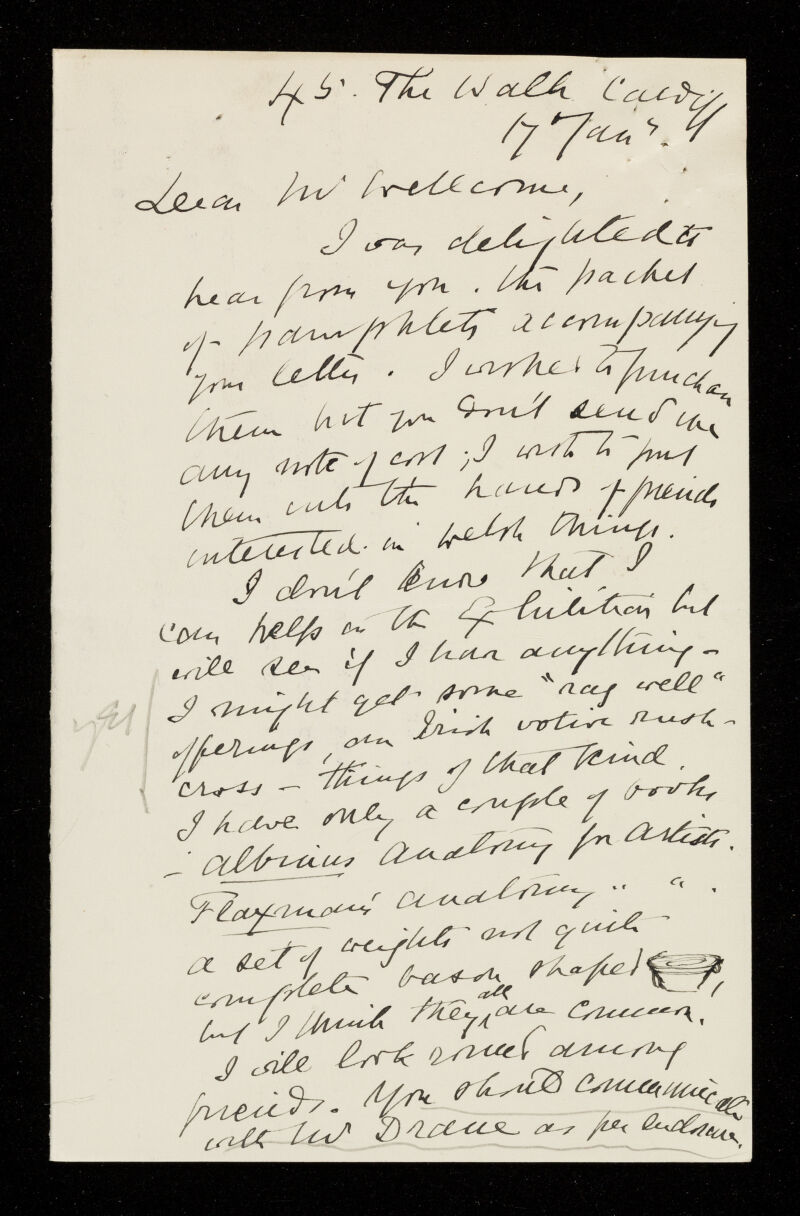 45. The Walk Cardiff
17 Jany.
Dear Mr Wellcome,
I was delighted to
hear from you. the packet
of pamphlets accompanying
your letter. I wished to purchase
them but you don't send me
any note of cost; I wish to put
them into the hands of friends
interested in Welsh things.
I don't know that I
can help in the Exhibition but
will see if I have anything -
I might get some "rag well"
offerings, an Irish votive rush-
cross - things of that kind.
I have only a couple of books
- Albinius Anatomy for Artists.
Flaxman's Anatomy " " .
a set of weights not quite
complete bason shaped ,
but I think they all are common.
I will look round among
friends. You should communicate
with Mr Drane as per enclosure.